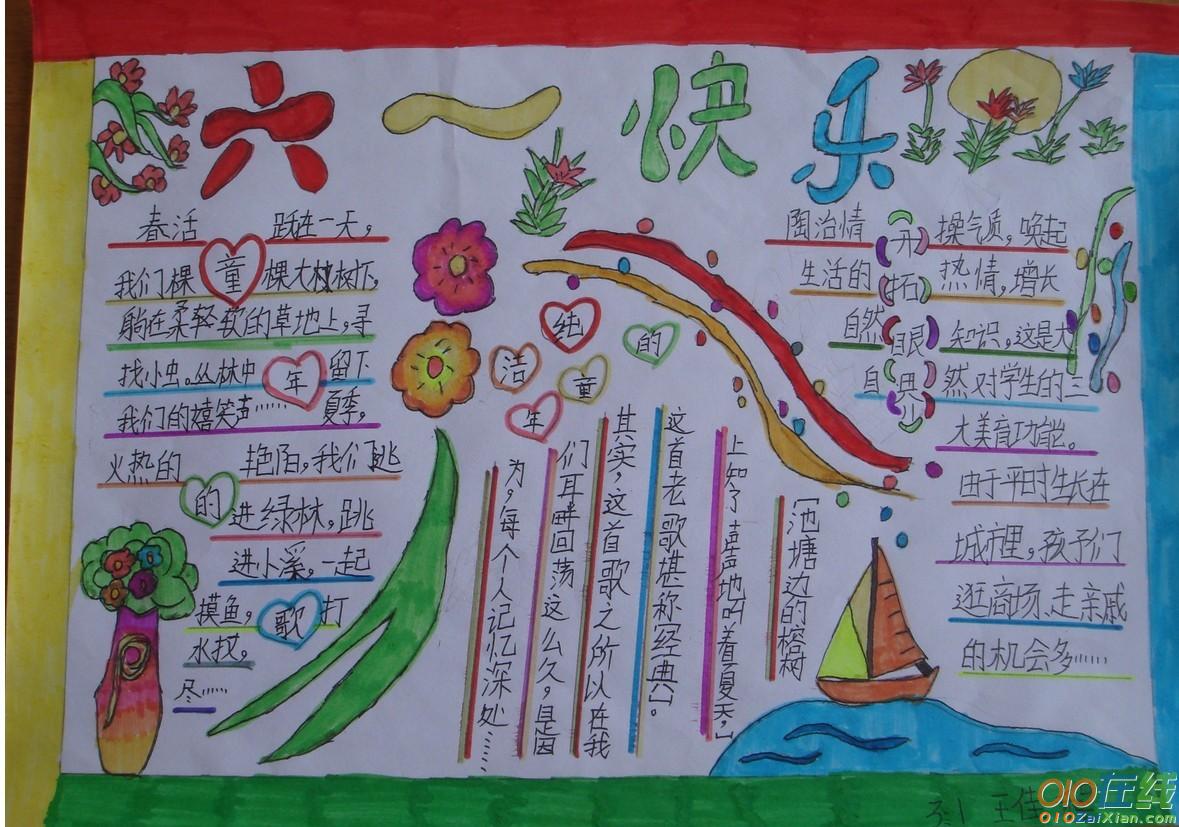 六一快乐
童年的歌
春活跃在一天，
我们棵棵大树树下，
躺在柔轻软的草地上，寻
找小虫。丛林中留下
我们的嬉笑声……夏季，
火热的艳阳，我们跳
进绿林，跳
进小溪，一起
摸鱼，打
水扙，
尽……
纯洁的童年
〔池塘边的榕树
上知了声声地叫着夏天，〕
这首老歌堪称〔经典〕。
其实，这首歌之所以在我
们耳畔回荡这么久，是因
为，每个人记忆深处……
开拓眼界
陶冶情操气质，唤起
生活的热情，增长
自然知识，这是大
自然对学生的三
大美育功能。
由于平时生长在
城市里，孩子们
逛商场、走亲戚
的机会多……
3.1 王佳
010在线
010ZaiXian.com